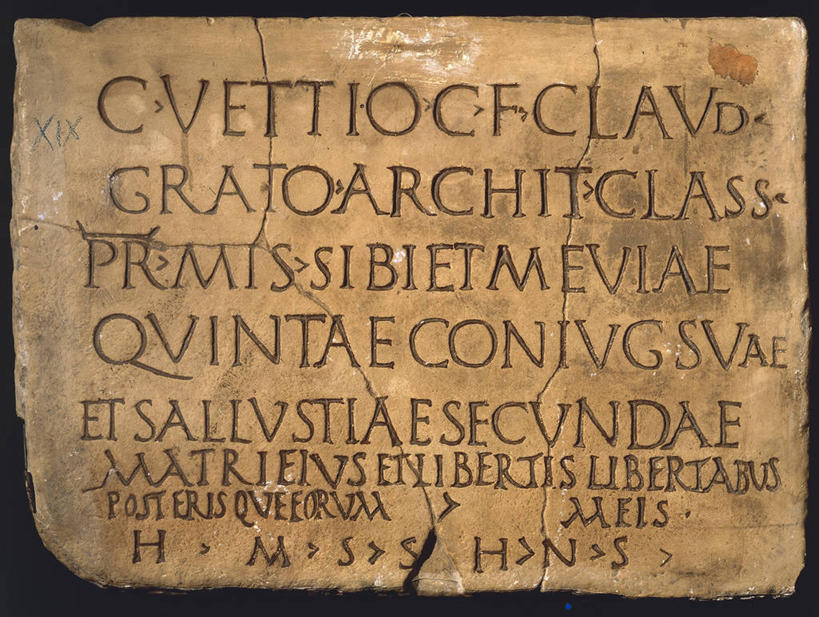 XIX
C·VETTIO·C·F·CLAVD·
GRATO·ARCHIT·CLASS·
PR·MIS·SIBI ET MEVIAE
QVINTAE CONIVG SVAE
ET SALLVSTIAE SECVNDAE
MATRI EIVS ET LIBERTIS LIBERTABVS
POSTERISQVE EORVM · MEIS ·
H · M · S · S H · N · S ·